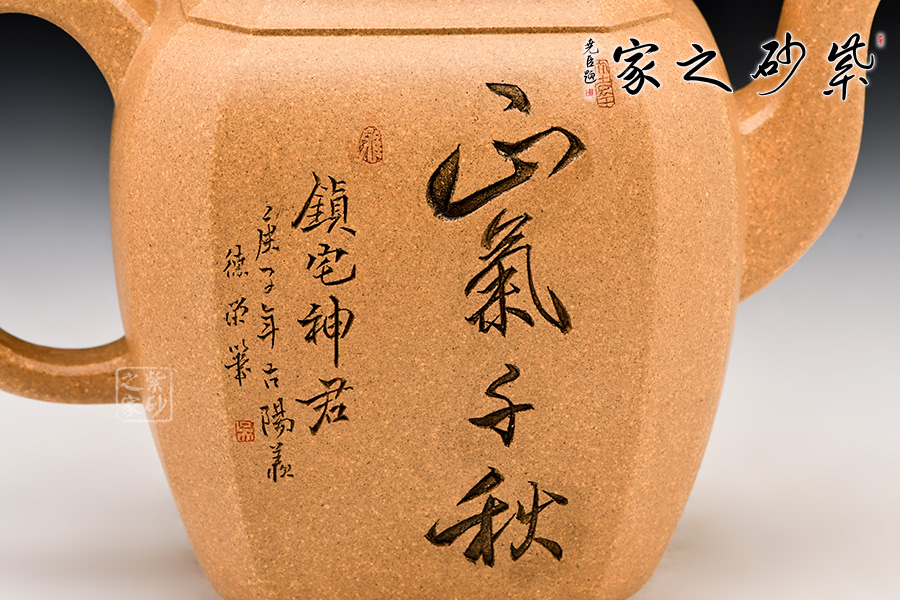 紫砂之家
堯臣題
正氣千秋
鎮宅神君
庚子年古陽羨
德榮筆
紫砂之家